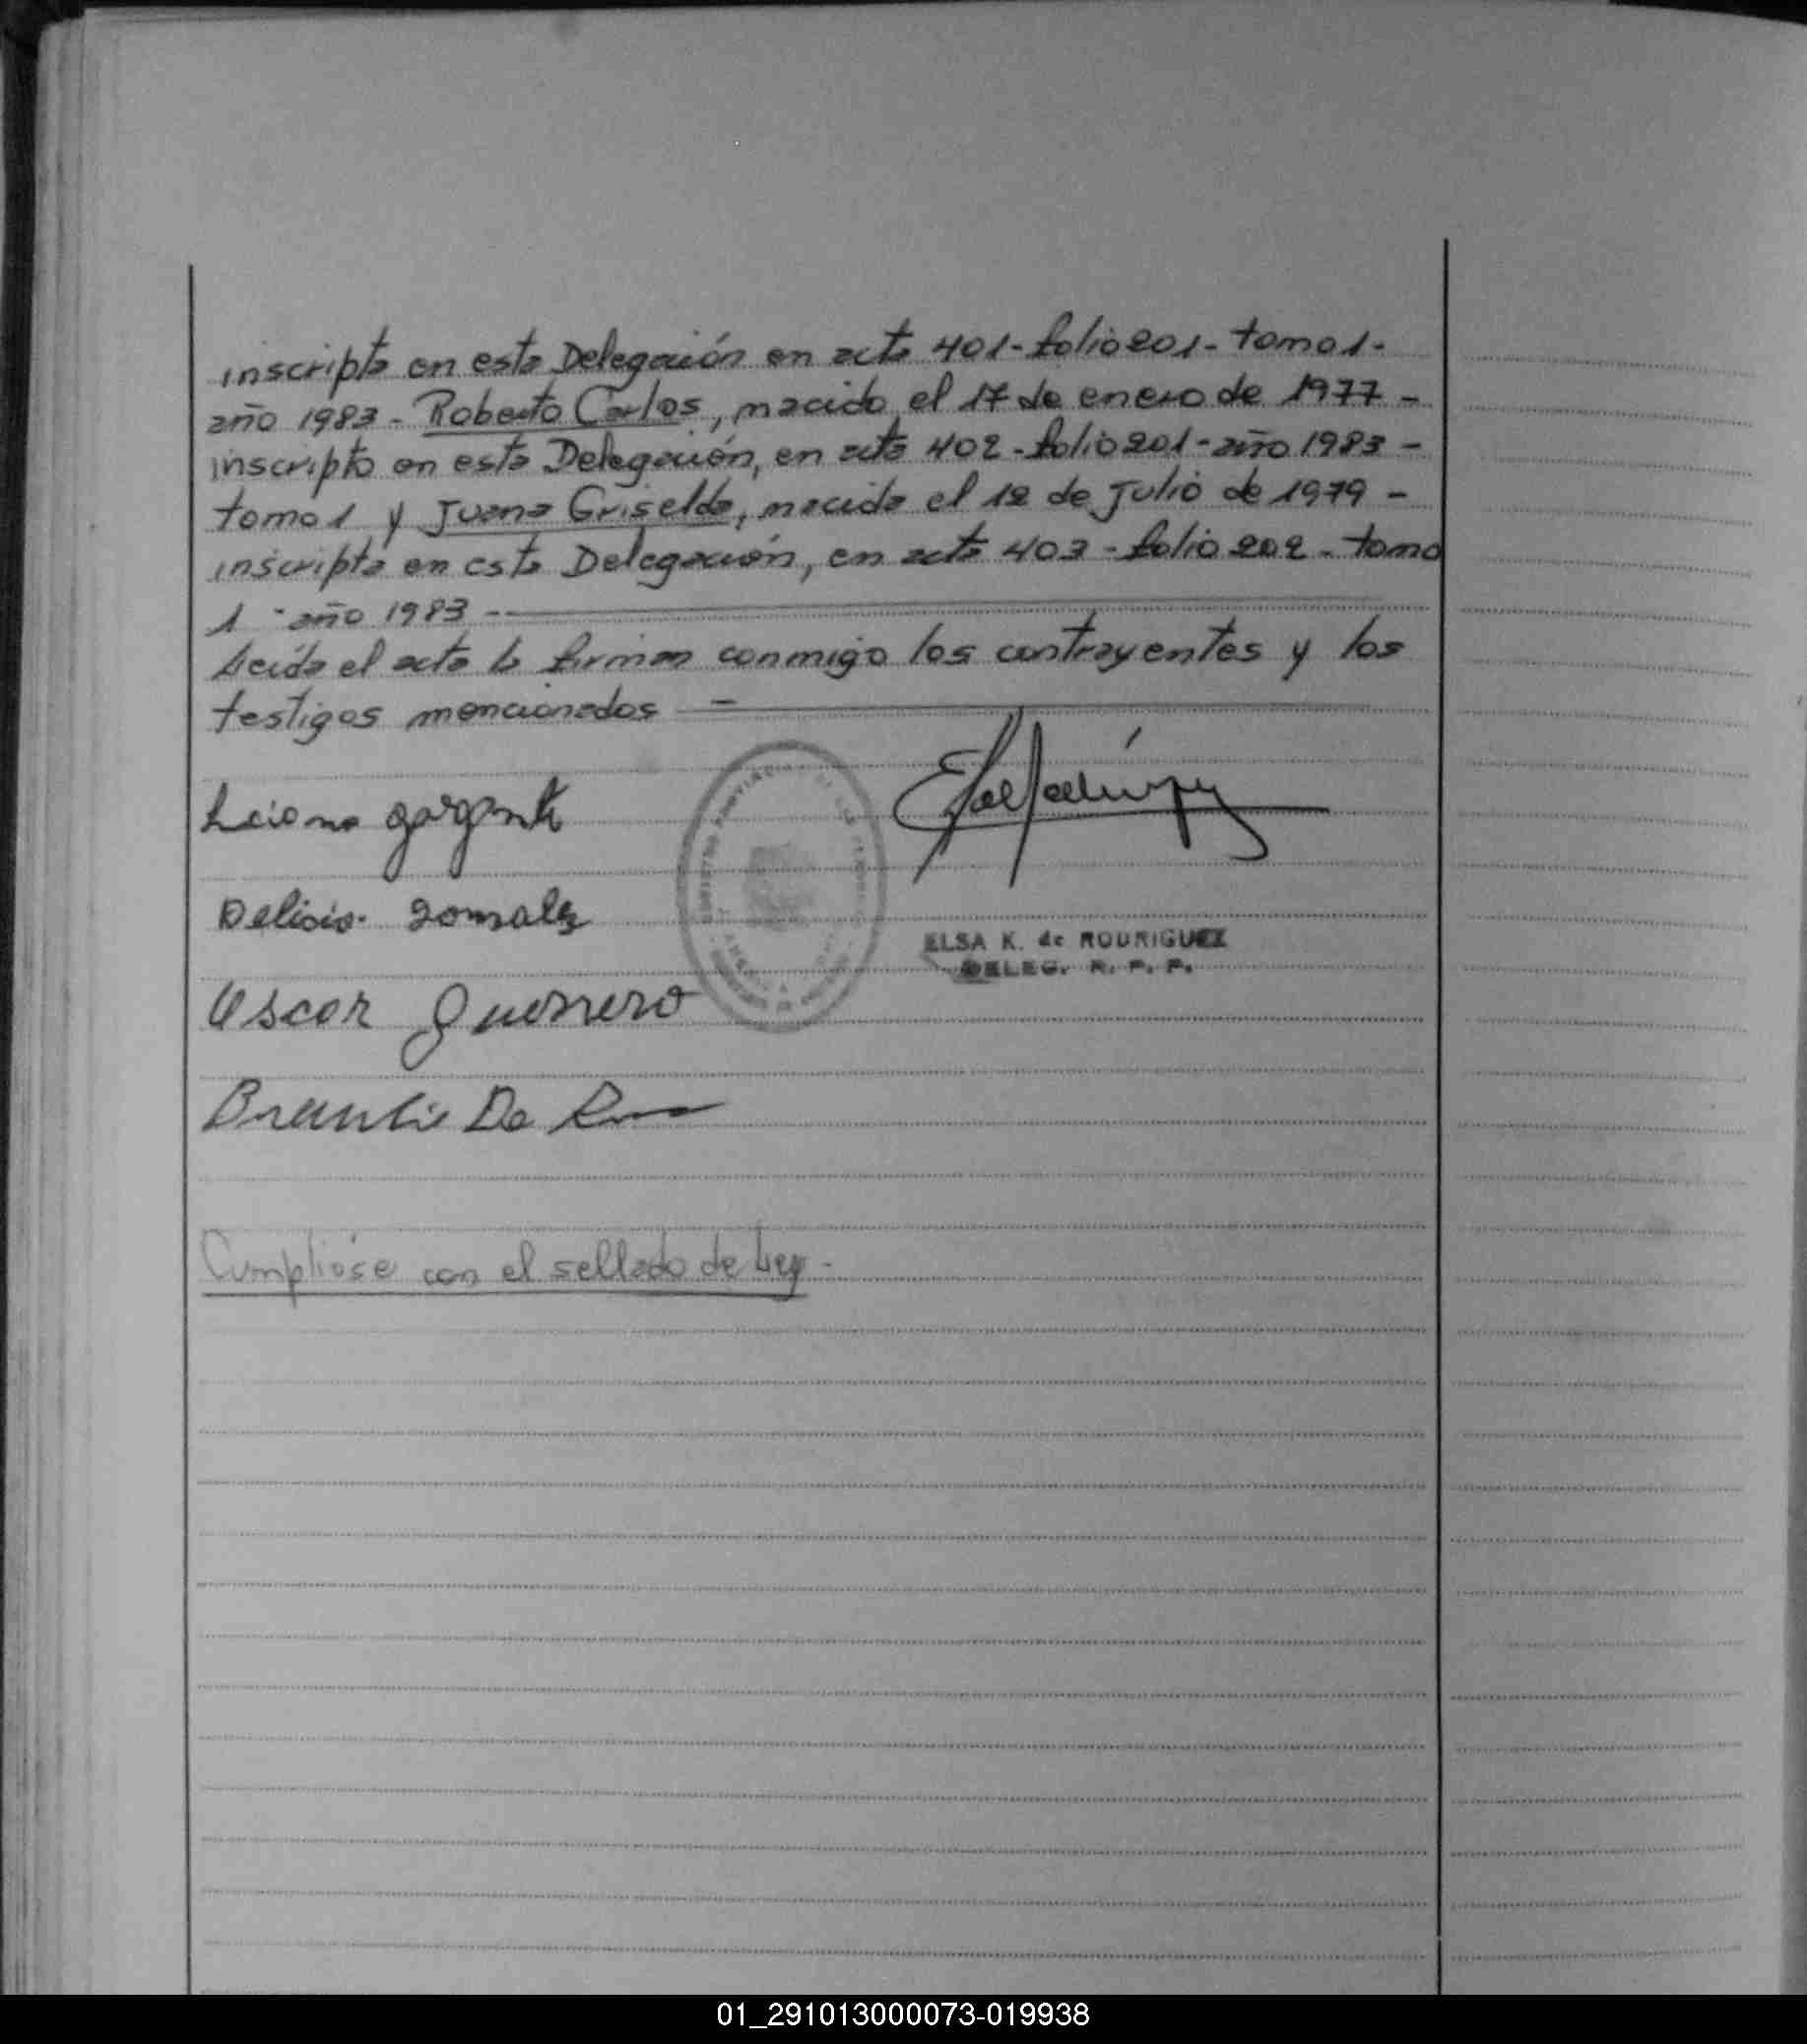 inscripta en esta Delegación en acta 401 - folio 201 - tomo 1 -
año 1983 - Roberto Carlos, nacido el 17 de enero de 1977 -
inscripto en esta Delegación, en acta 402 - folio 201 - año 1983 -
tomo 1 y Juana Griselda, nacida el 12 de Julio de 1979 -
inscripta en esta Delegación, en acta 403 - folio 202 - tomo
1 - año 1983 -
Leída el acta la firman conmigo los contrayentes y los
testigos mencionados -
Delicia Gonzalez
ELSA K. de RODRIGUEZ
DELEG. R. P. P.
Oscar Guerrero
Cumplióse con el sellado de Ley -
01_291013000073-019938